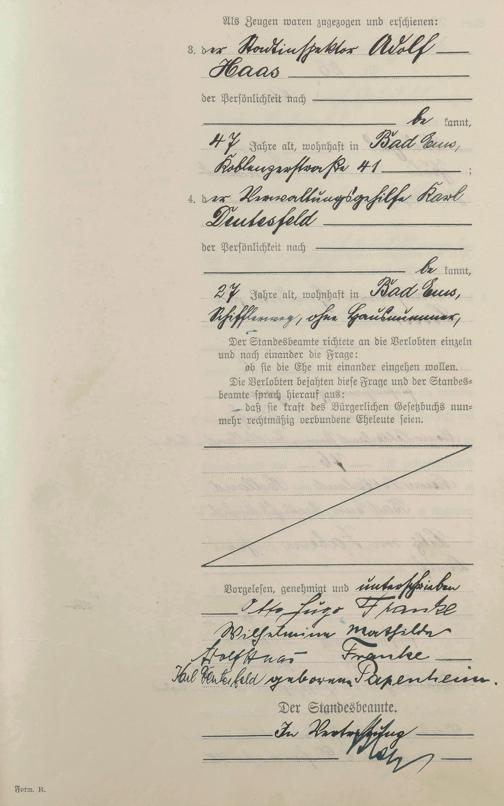 Als Zeugen waren zugezogen und erschienen:
3. der Stadtinspektor Adolf
Haas
der Persönlichkeit nach
be kannt,
47 Jahre alt, wohnhaft in Bad Ems,
Koblenzerstraße 41 ;
4. der Verwaltungsgehilfe Karl
Deutesfeld
der Persönlichkeit nach
be kannt,
27 Jahre alt, wohnhaft in Bad Ems,
ohne Hausnummer,
Der Standesbeamte richtete an die Verlobten einzeln
und nach einander die Frage:
ob sie die Ehe mit einander eingehen wollen.
Die Verlobten bejahten diese Frage und der Standes-
beamte sprach hierauf aus:
daß sie kraft des Bürgerlichen Gesetzbuchs nun-
mehr rechtmäßig verbundene Eheleute seien.
Vorgelesen, genehmigt und unterschrieben
Otto Hugo Franke
Wilhelmine Mathilde
Adolf Haas Franke
Karl Deutesfeld geborene Papenheim.
Der Standesbeamte.
In Vertretung
Form. B.